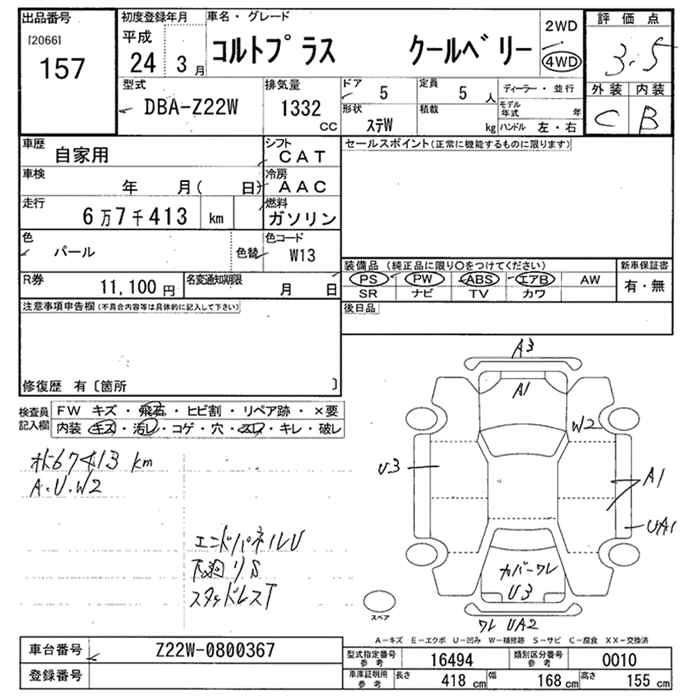 出品番号
[2066]
157
初度登録年月
平成
24 3月
車名・グレード
コルトプラス クールベリー
2WD
4WD
評価点
3.5
型式
DBA-Z22W
排気量
1332
CC
ドア 5
定員 5 人
形状
ステW
積載
kg
ディーラー・並行
モデル年式 年
ハンドル 左・右
外装 内装
C B
車歴
自家用
シフト
CAT
車検
年 月( 日)
冷房
AAC
走行
6万7千413 km
燃料
ガソリン
色
パール
色替
色コード
W13
R券
11,100 円
名変通知期限
月 日
セールスポイント(正常に機能するものに限ります)
装備品 (純正品に限り○をつけてください)
新車保証書
PS PW ABS エアB AW
SR ナビ TV カワ
有・無
後日品
注意事項申告欄(不具合内容等は具体的に記入して下さい)
修復歴 有〔箇所 〕
検査員
記入欄
FW キズ・飛石・ヒビ割・リペア跡・×要
内装 キズ・汚レ・コゲ・穴・スレ・キレ・破レ
67413 km
A・U・W2
エンドパネルU
下廻りS
スタッドレスT
A3
A1
W2
U3
A1
UA1
カバーワレ
U3
ワレ UA2
スペア
A−キズ E−エクボ U−凹み W−補修跡 S−サビ C−腐食 XX−交換済
車台番号
Z22W-0800367
登録番号
型式指定番号
参考
16494
類別区分番号
参考
0010
車庫証明用
参考
長さ 418 cm
幅 168 cm
高さ 155 cm